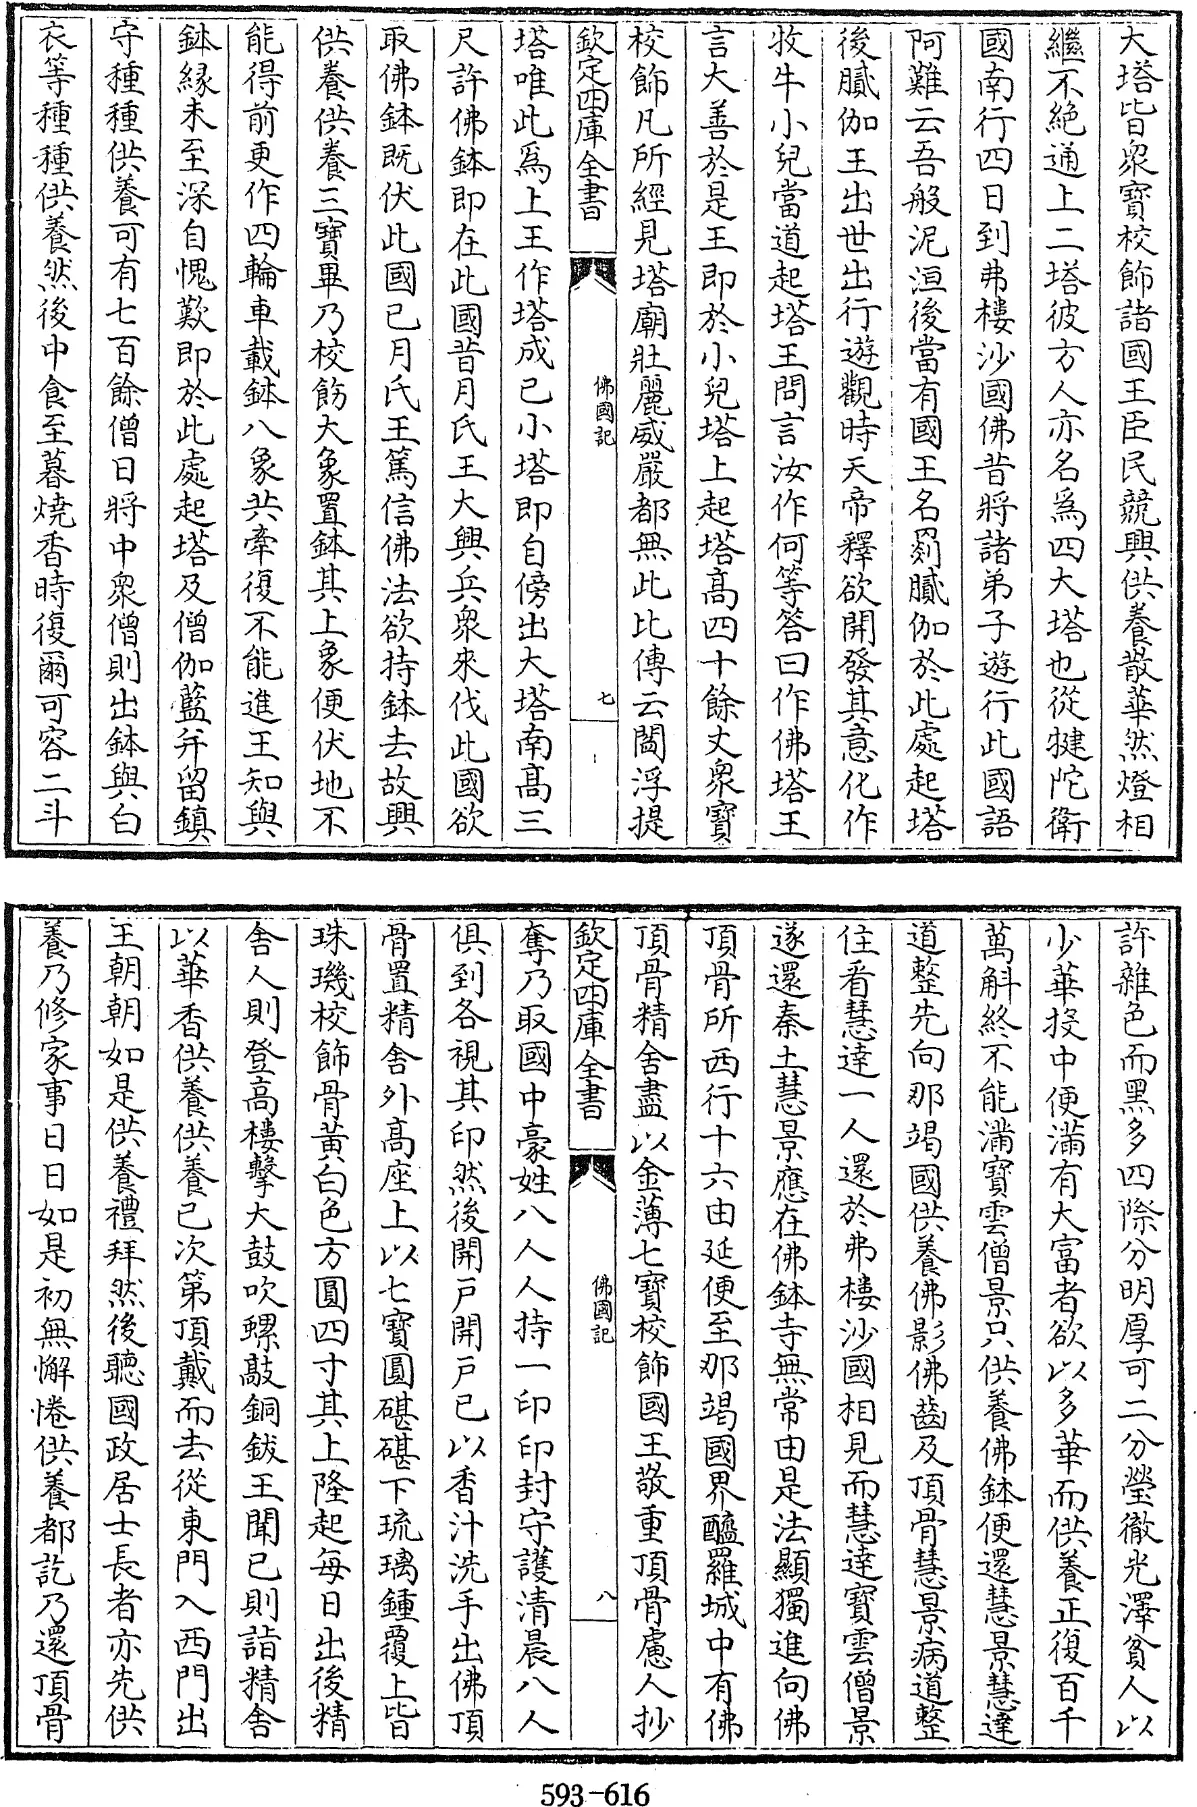 大塔皆衆寳校飾諸國王臣民競興供養散華然燈相
繼不絶通上二塔彼方人亦名爲四大塔也從犍陀衛
國南行四日到弗樓沙國佛昔將諸弟子遊行此國語
阿難云吾般泥洹後當有國王名罽膩伽於此處起塔
後膩伽王出世出行遊觀時天帝釋欲開發其意化作
牧牛小兒當道起塔王問言汝作何等答曰作佛塔王
言大善於是王即於小兒塔上起塔髙四十餘丈衆寳
校飾凡所經見塔廟壯麗威嚴都無此比傳云閻浮提
欽定四庫全書
佛國記
七
塔唯此爲上王作塔成已小塔即自傍出大塔南髙三
尺許佛鉢即在此國昔月氏王大興兵衆來伐此國欲
取佛鉢既伏此國已月氏王篤信佛法欲持鉢去故興
供養供養三寳畢乃校飭大象置鉢其上象便伏地不
能得前更作四輪車載鉢八象共牽復不能進王知與
鉢緣未至深自愧歎即於此處起塔及僧伽藍并留鎮
守種種供養可有七百餘僧日將中衆僧則出鉢與白
衣等種種供養然後中食至暮燒香時復爾可容二斗
許雜色而黑多四際分明厚可二分瑩徹光澤貧人以
少華投中便滿有大富者欲以多華而供養正復百千
萬斛終不能滿寳雲僧景只供養佛鉢便還慧景慧達
道整先向那竭國供養佛影佛齒及頂骨慧景病道整
住看慧達一人還於弗樓沙國相見而慧達寳雲僧景
遂還秦土慧景應在佛鉢寺無常由是法顯獨進向佛
頂骨所西行十六由延便至那竭國界醯羅城中有佛
頂骨精舍盡以金薄七寳校飾國王敬重頂骨慮人抄
欽定四庫全書
佛國記
八
奪乃取國中豪姓八人人持一印印封守護清晨八人
俱到各視其印然後開戶開戶已以香汁洗手出佛頂
骨置精舍外髙座上以七寳圓碪碪下琉璃鍾覆上皆
珠璣校飾骨黃白色方圓四寸其上隆起每日出後精
舍人則登髙樓擊大鼓吹螺敲銅鈸王聞已則詣精舍
以華香供養供養已次第頂戴而去從東門入西門出
王朝朝如是供養禮拜然後聽國政居士長者亦先供
養乃修家事日日如是初無懈倦供養都訖乃還頂骨
593-616